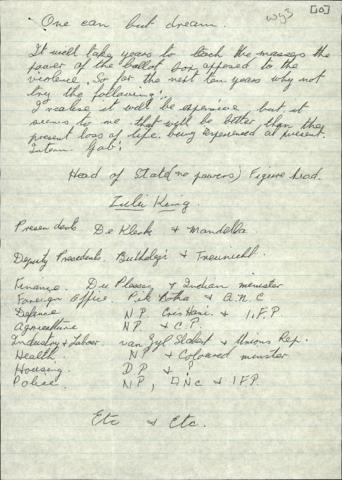 [10]
wy3
One can but dream.
It will take years to teach the masses the
power of the ballot box opposed to the
violence. So for the next ten years why not
try the following:
I realise it will be expensive but it
seems to me that will be better than the
present loss of life being experienced at present.
Interim Gov:
Head of State (no powers) Figure head.
Zulu King.
Presendents De Klerk & Mandella
Deputy Presedents. Buthelezi & Treunicht.
Finance. Du Plessey & Indian minister
Foreign Office. Pik Botha & A.N.C
Defense N.P. Cris Hani & I.F.P.
Agriculture N.P. & C.P.
Industry & Labour van Zyl Slabert & Unions Rep.
Health. N.P. & Coloured minister
Housing. D P & ?
Police. N.P, ANC & IFP.
Etc & Etc.